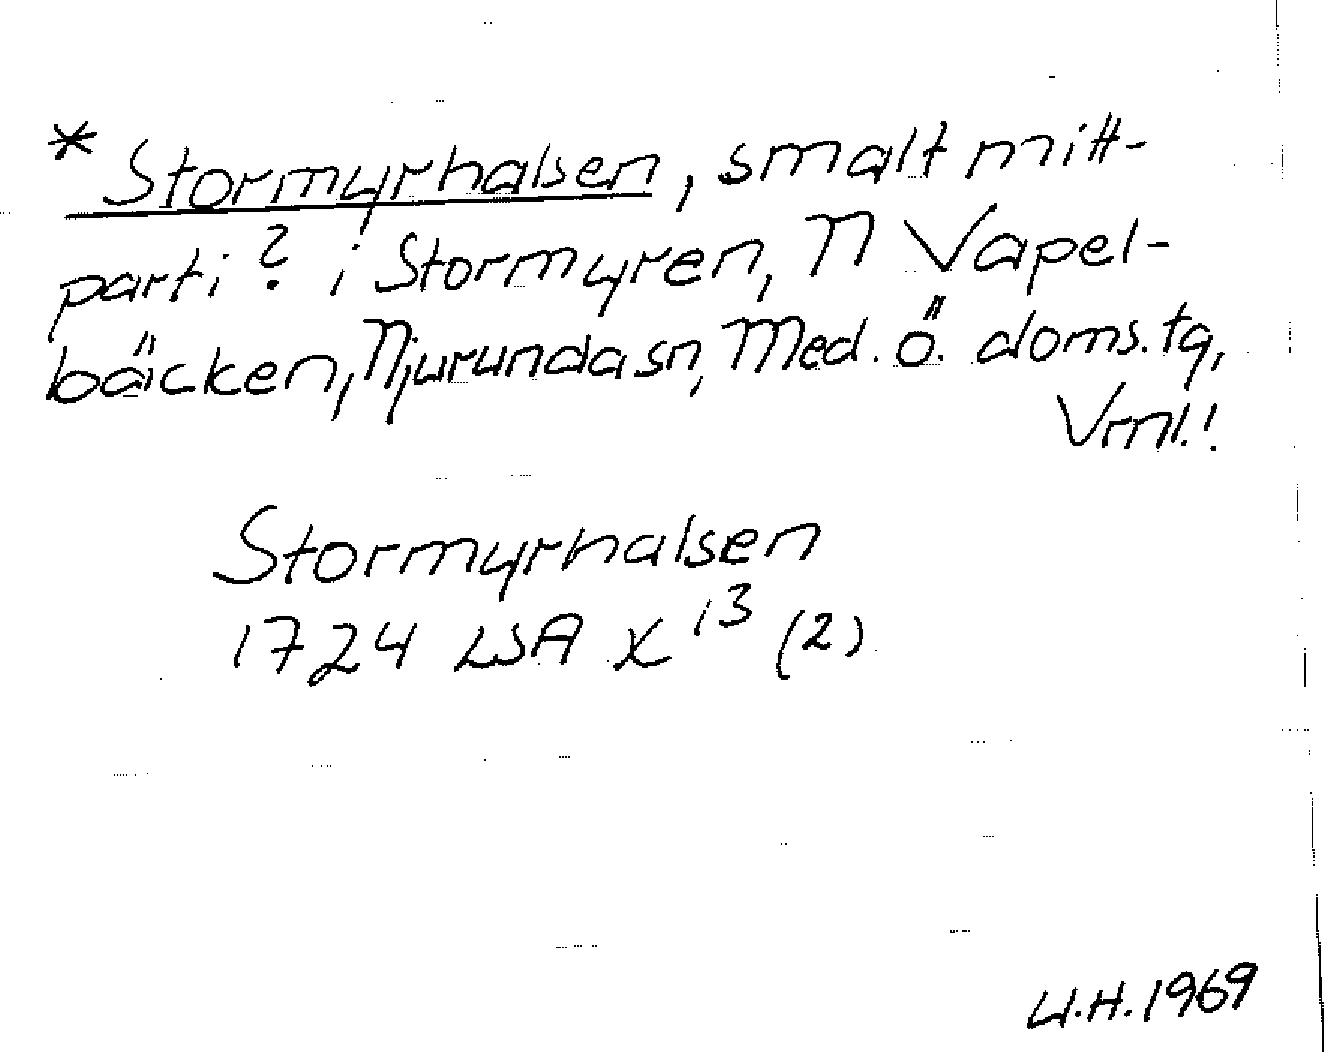 * Stormyrhalsen, smalt mitt-
parti? i Stormyren, N Vapel-
bäcken, Njurundasn, Med. ö. doms. tg,
Vrnl.!
Stormyrhalsen
1724 LSA X 13 (2)
U.H. 1969